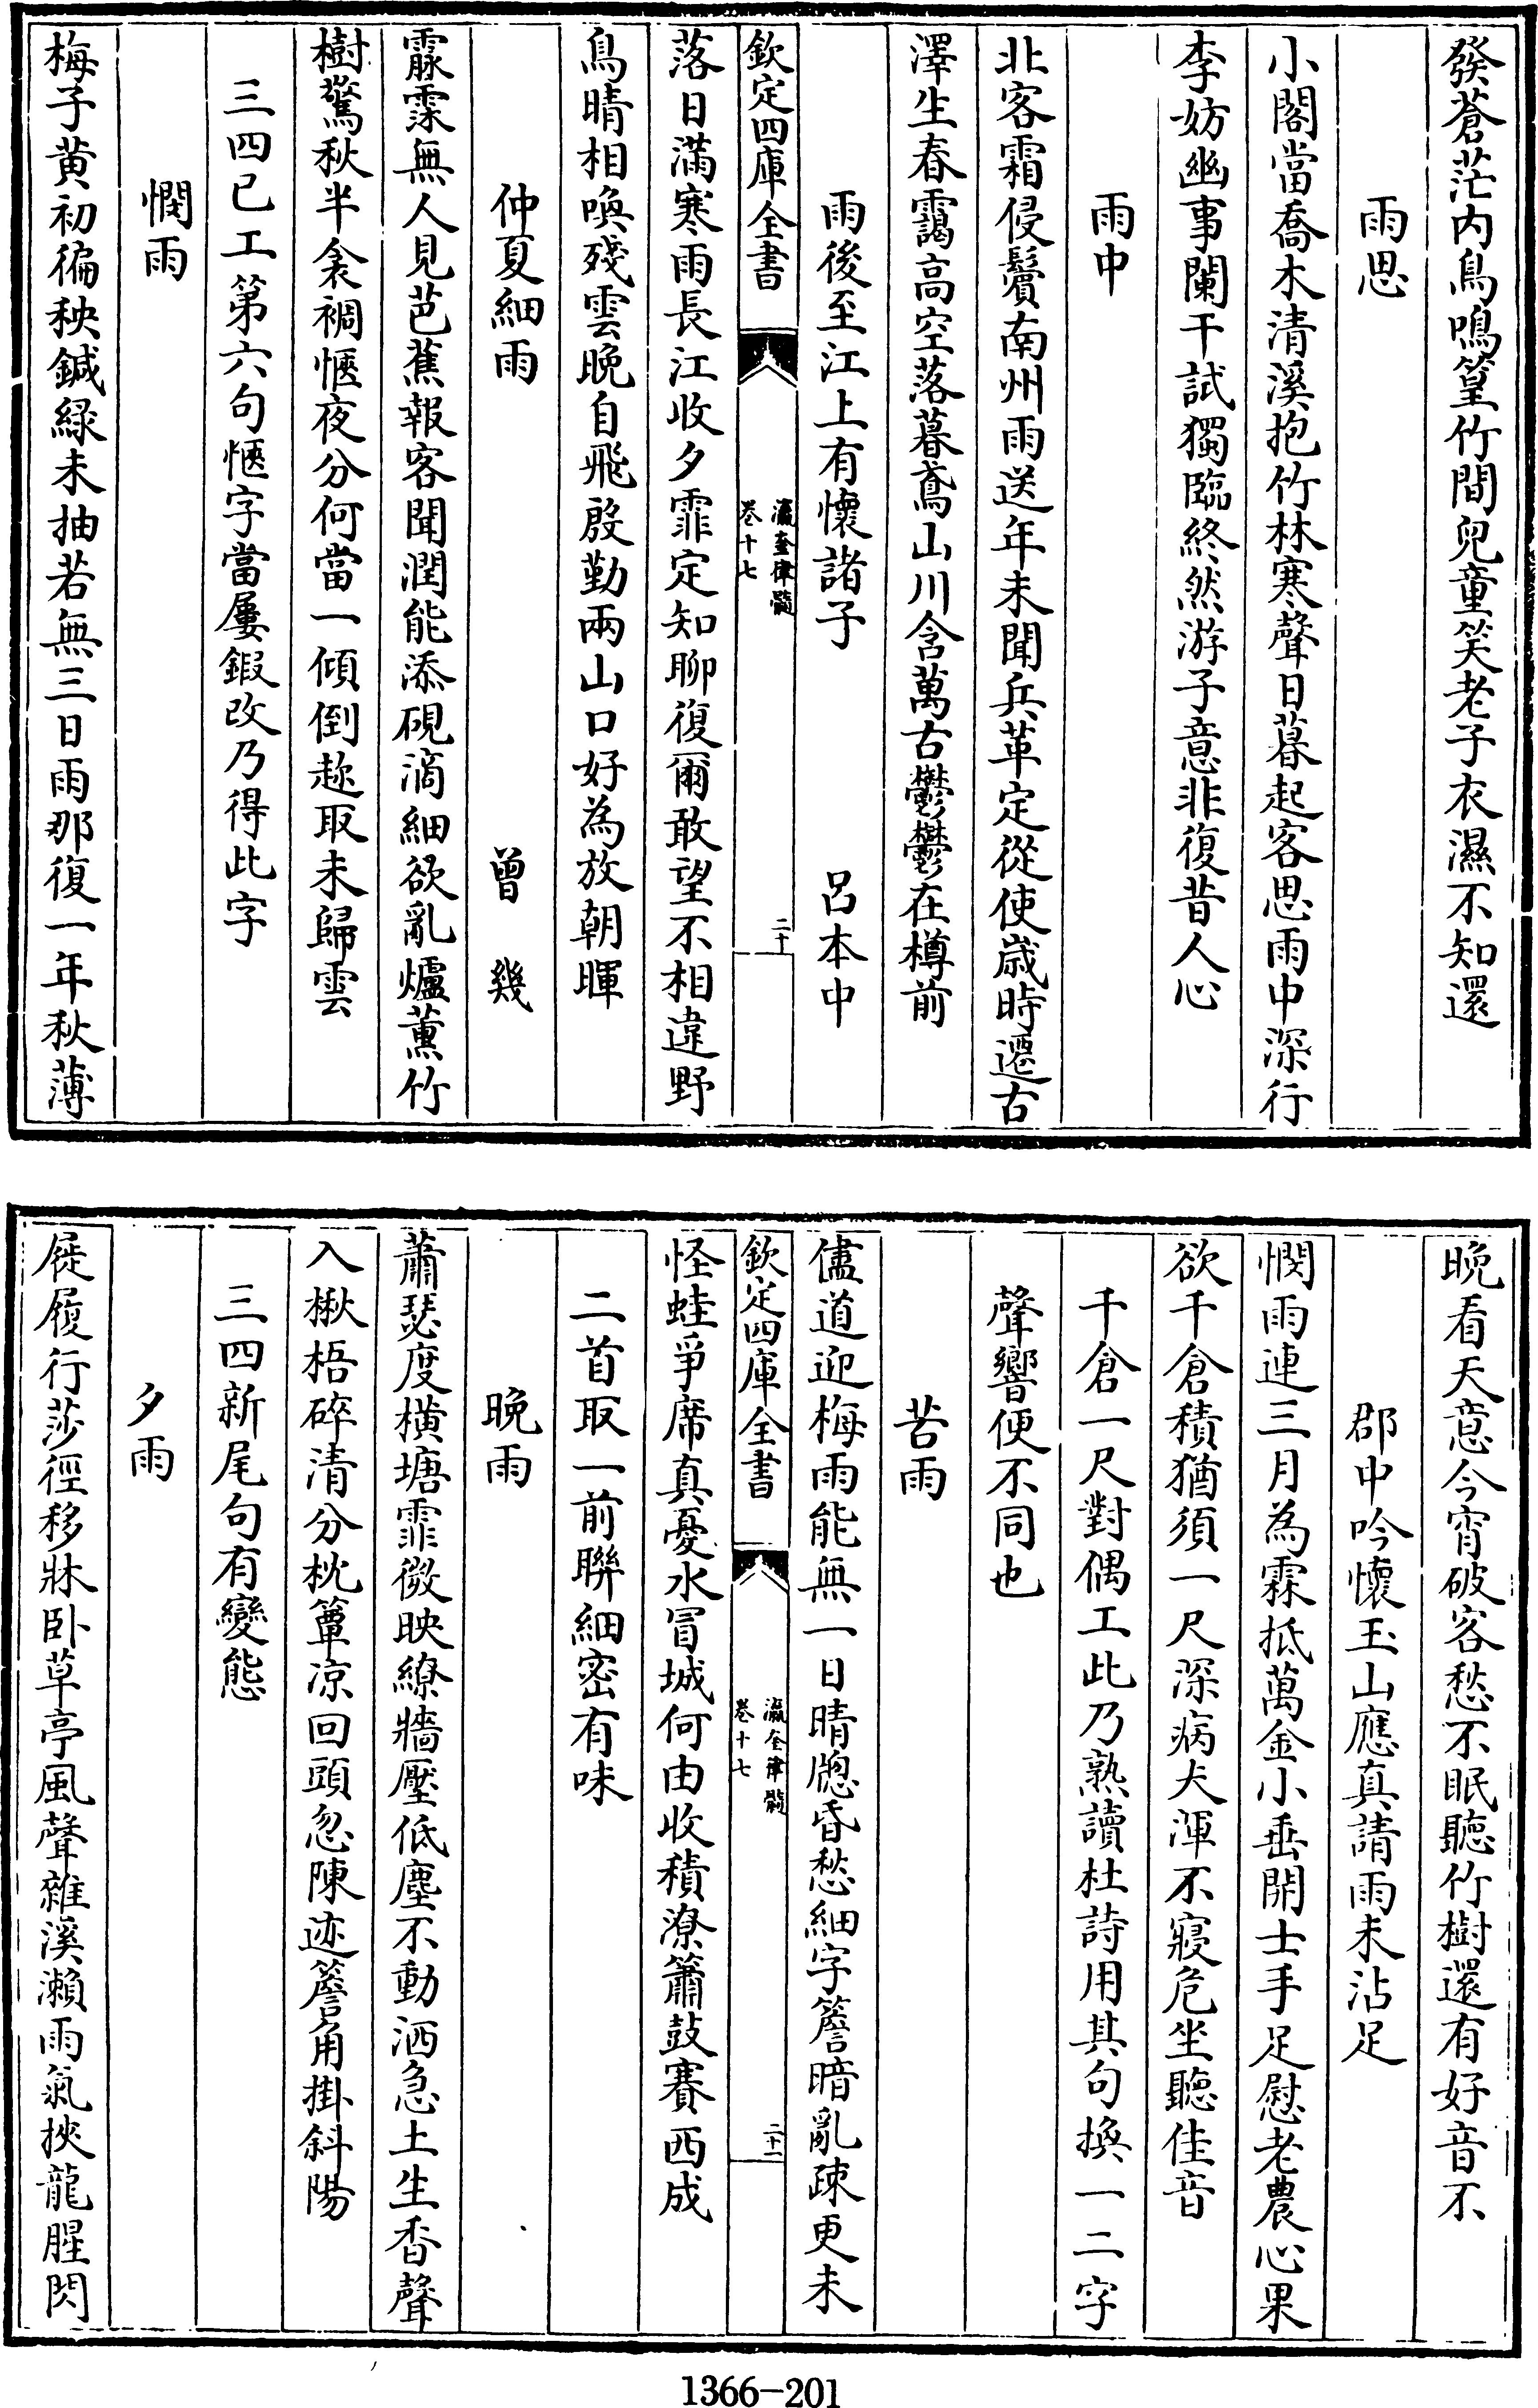 發蒼茫内鳥鳴篁竹間兒童笑老子衣濕不知還
雨思
小閣當喬木清溪抱竹林寒聲日暮起客思雨中深行
李妨幽事闌干試獨臨終然游子意非復昔人心
雨中
北客霜侵鬢南州雨送年未聞兵革定從使歲時遷古
澤生春靄高空落暮鳶山川含萬古鬱鬱在樽前
雨後至江上有懷諸子 呂本中
欽定四庫全書 瀛奎律髓 卷十七 二十
落日滿寒雨長江收夕霏定知聊復爾敢望不相違野
鳥晴相喚殘雲晚自飛殷勤兩山口好為放朝暉
仲夏細雨 曾幾
霡霂無人見芭蕉報客聞潤能添硯滴細欲亂爐薰竹
樹驚秋半衾裯愜夜分何當一傾倒趂取未歸雲
三四已工第六句愜字當屢鍜改乃得此字
憫雨
梅子黄初徧秧鍼緑未抽若無三日雨那復一年秋薄
晚看天意今宵破客愁不眠聽竹樹還有好音不
郡中吟懷玉山應真請雨未沾足
憫雨連三月為霖抵萬金小垂開士手足慰老農心果
欲千倉積猶須一尺深病夫渾不寢危坐聽佳音
千倉一尺對偶工此乃熟讀杜詩用其句換一二字
聲響便不同也
苦雨
儘道迎梅雨能無一日晴牕昏愁細字簷暗亂疎更未
欽定四庫全書 瀛奎律髓 卷十七 二十一
怪蛙爭席真憂水冒城何由收積潦簫鼓賽西成
二首取一前聯細密有味
晚雨
蕭瑟度橫塘霏微映繚牆壓低塵不動洒急土生香聲
入楸梧碎清分枕簟凉回頭忽陳迹簷角掛斜陽
三四新尾句有變態
夕雨
屣履行莎徑移牀卧草亭風聲雜溪瀨雨氣挾龍腥閃
1366-201